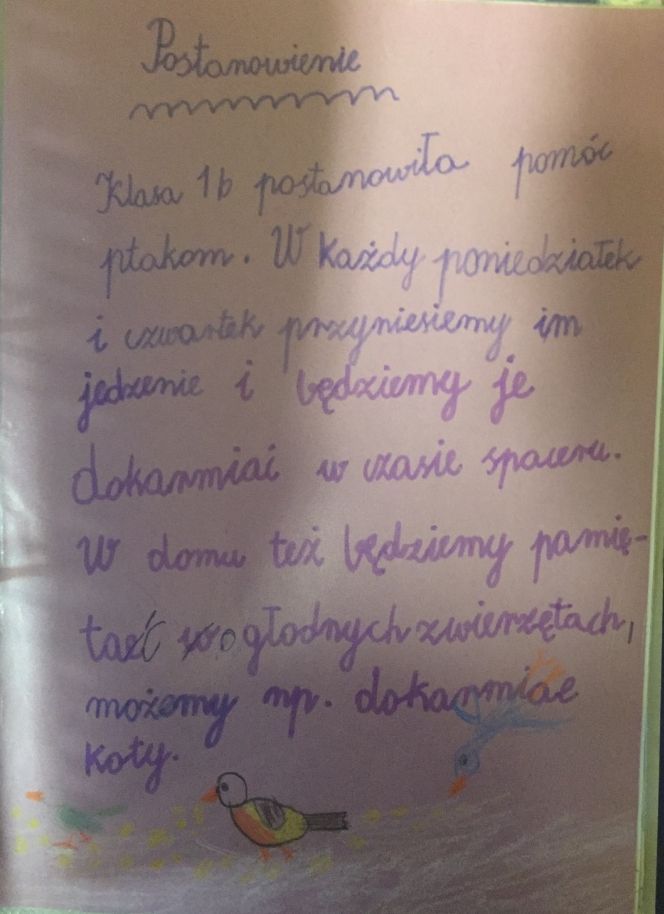 Postanowienie
Klasa 1b postanowiła pomóc
ptakom. W każdy poniedziałek
i czwartek przyniesiemy im
jedzenie i będziemy je
dokarmiać w czasie spaceru.
W domu też będziemy pamię-
tać o głodnych zwierzętach,
możemy np. dokarmiać
koty.